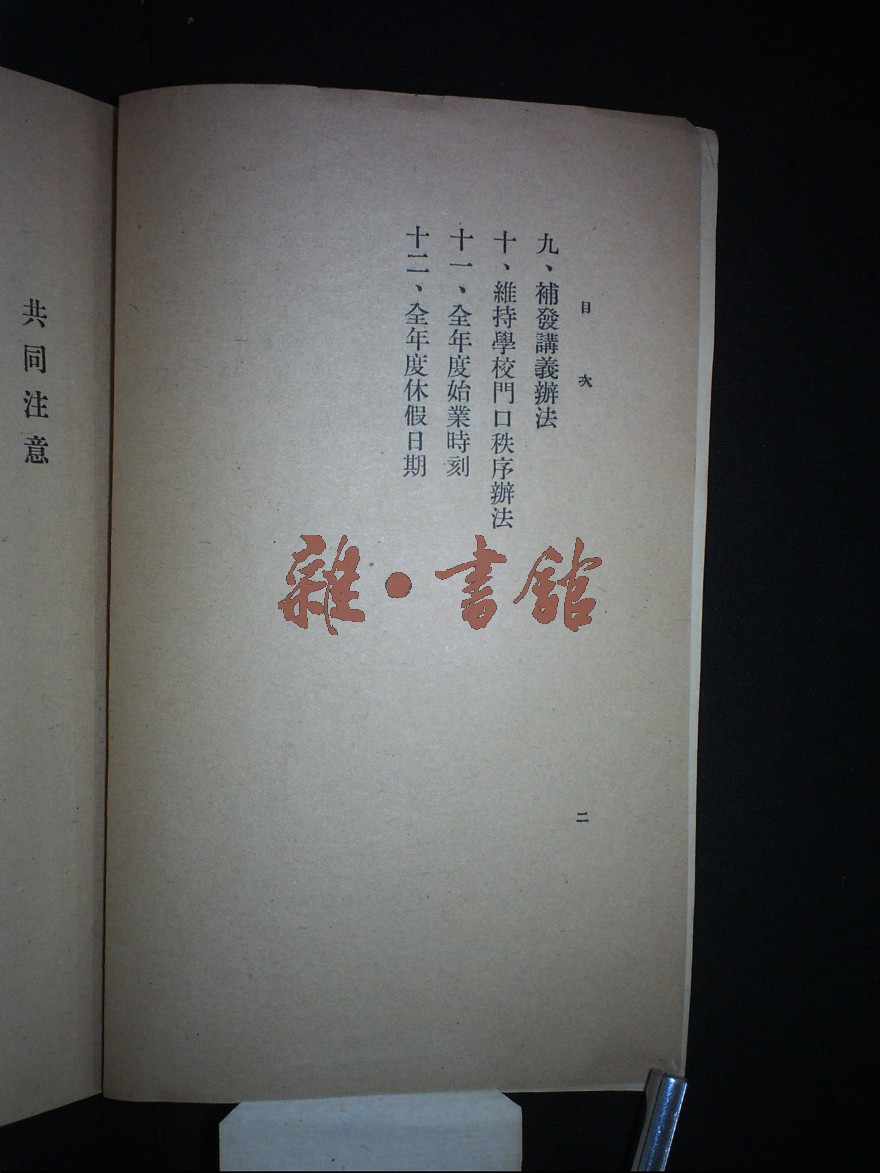 目次
九、補發講義辦法
十、維持學校門口秩序辦法
十一、全年度始業時刻
十二、全年度休假日期
二
共同注意
雜·書館